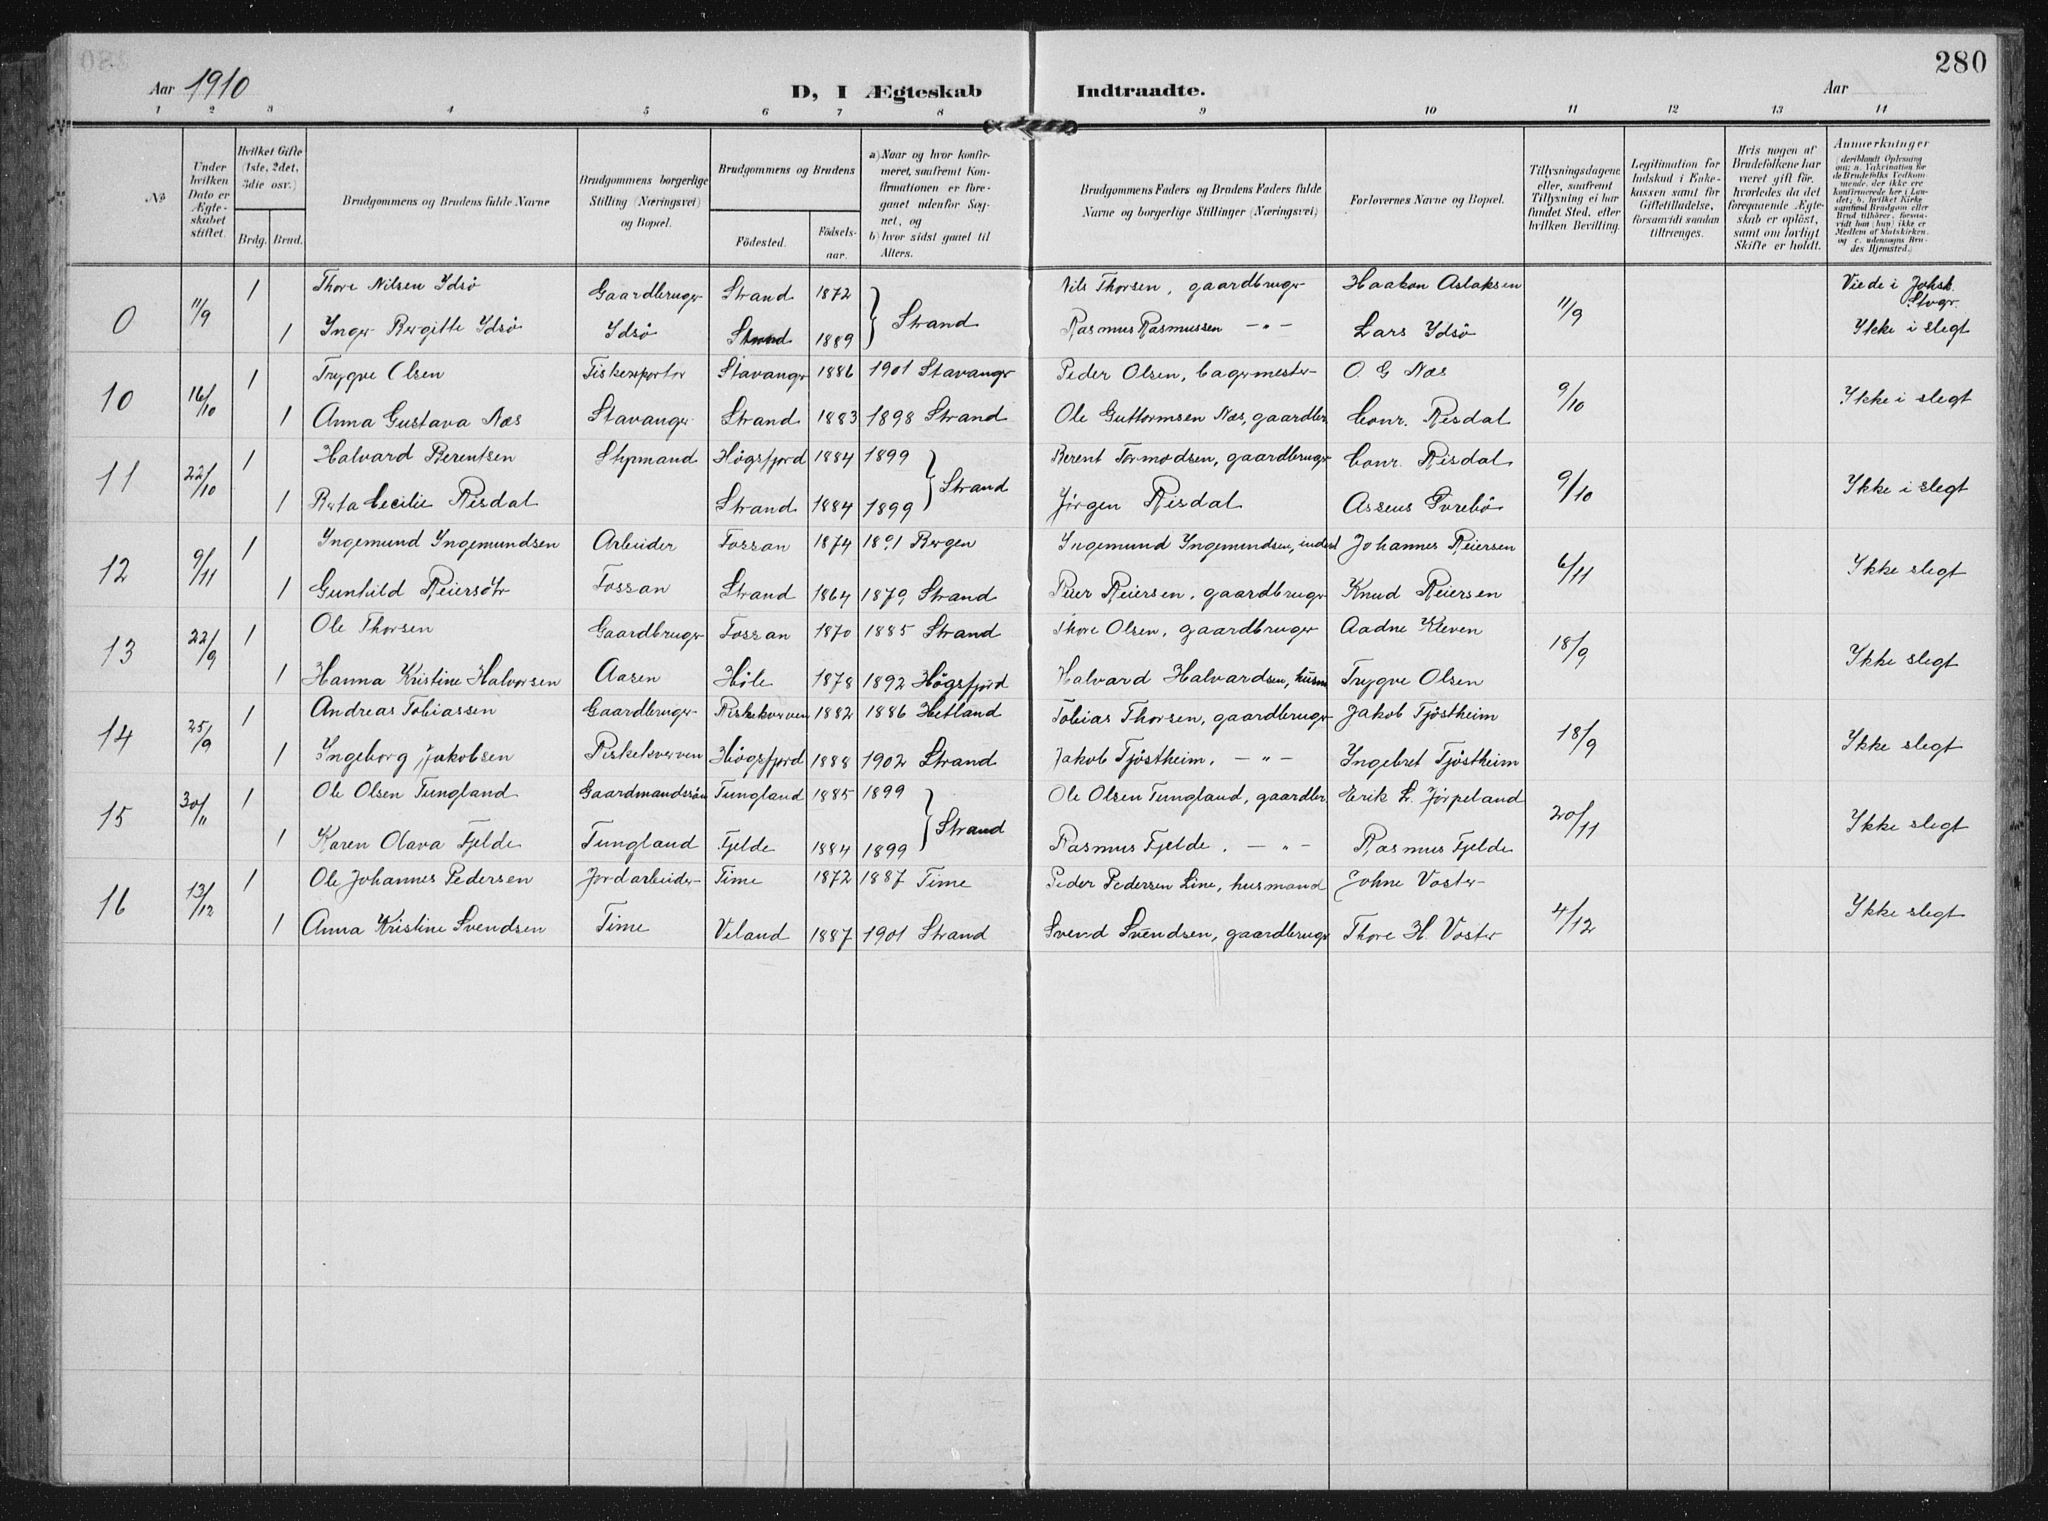 280
Aar 1910
D, I Ægteskab Indtraadte.
Aar
1 2 3 4 5 6 7 8 9 10 11 12 13 14
No.
Under hvilken Dato er Ægteskabet stiftet.
Hvilket Gifte (1ste, 2det, 3die osv.)
Brdg. Brud.
Brudgommens og Brudens fulde Navne
Brudgommens borgerlige Stilling (Næringsvei) og Bopæl.
Brudgommens og Brudens
Fødested. Fødselsaar.
a) Naar og hvor konfirmeret, saafremt Konfirmationen er foregaaet udenfor Sognet, og
b) hvor sidst gaaet til Alters.
Brudgommens Faders og Brudens Faders fulde Navne og borgerlige Stillinger (Næringsvei)
Forlovernes Navne og Bopæl.
Tillysningsdagene eller, saafremt Tillysning ei har fundet Sted, efter hvilken Bevilling.
Legitimation for Indskud i Enkekassen samt for Giftetilladelse, forsaavidt saadan tiltrænges.
Hvis nogen af Brudefolkene har været gift før, hvorledes da det foregaaende Ægteskab er opløst, samt om lovligt Skifte er holdt.
Anmerkninger
0 11/9 1 Thore Nilsen Idsø Gaardbruger Strand 1872 Nils Thorsen, gaardbruger Haakon Aslaksen 11/9 Viede i Johsk. Stvgr.
1 Inger Bergitte Idsø Idsø Strand 1889 } Strand Rasmus Rasmussen -"- Lars Idsø Ikke i slegt
10 16/10 1 Trygve Olsen Fiskexportør Stavanger 1886 1901 Stavanger Peder Olsen, bagermester O. G Næs 9/10 Ikke i slegt
1 Anna Gustava Næs Stavanger Strand 1883 1898 Strand Ole Guttormsen Næs, gaardbr. Conr. Risdal
11 22/10 1 Halvard Berentsen Styrmand Høgsfjord 1884 1899 Berent Tormodsen, gaardbruger Conr. Risdal 9/10 Ikke i slegt
1 Berta Cecilie Risdal Strand 1884 1899 } Strand Jørgen Risdal Assens
12 9/11 1 Ingemund Ingemundsen Arbeider Fossan 1874 1891 Bergen Ingemund Ingemundsen, inderst Johannes Reiersen 6/11 Ikke slegt
1 Gunhild Reiersdtr Fossan Strand 1864 1879 Strand Reier Reiersen, gaardbruger Knud Reiersen
13 22/9 1 Ole Thorsen Gaardbruger Fossan 1870 1885 Strand Thore Olsen, gaardbruger Aadne Kleven 18/9 Ikke slegt
1 Hanna Kristine Halvorsen Aasen Høle 1878 1892 Høgsfjord Halvard Halvardsen, husm Trygve Olsen
14 25/9 1 Andreas Tobiassen Gaardbruger Riskekverven 1882 1886 Hetland Tobias Thorsen, gaardbruger Jakob Tjøstheim 18/9 Ikke slegt
1 Ingeborg Jakobsen Riskekverven Høgsfjord 1888 1902 Strand Jakob Tjøstheim, -"- Ingebret Tjøstheim
15 30/11 1 Ole Olsen Tungland Gaardmandssøn Tungland 1885 1899 Ole Olsen Tungland, gaardbr. Erik L. Jørpeland 20/11 Ikke slegt
1 Karen Olava Fjelde Tungland Fjelde 1884 1899 } Strand Rasmus Fjelde. -"- Rasmus Fjelde
16 13/12 1 Ole Johannes Pedersen Jordarbeider Time 1872 1887 Time Peder Pedersen Line, husmand Johne Voster 4/12 Ikke slegt
1 Anna Kristine Svendsen Time Veland 1887 1901 Strand Svend Svendsen, gaardbruger Thore H. Voster